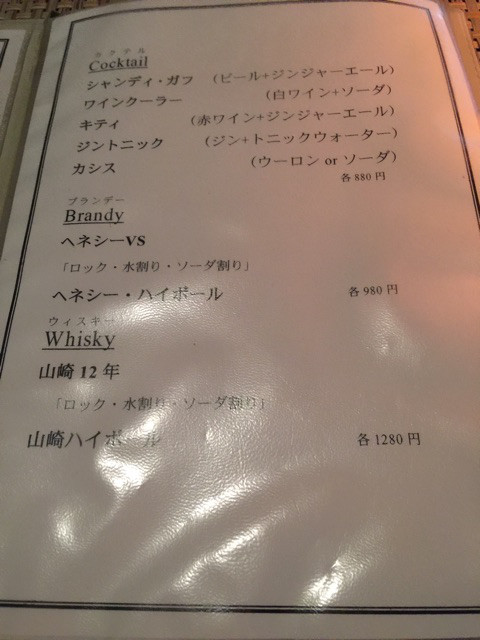 カクテル
Cocktail
シャンディ・ガフ （ビール+ジンジャーエール）
ワインクーラー （白ワイン+ソーダ）
キティ （赤ワイン+ジンジャーエール）
ジントニック （ジン+トニックウォーター）
カシス （ウーロン or ソーダ）
各 880 円
ブランデー
Brandy
ヘネシーVS
「ロック・水割り・ソーダ割り」
ヘネシー・ハイボール 各 980 円
ウィスキー
Whisky
山崎 12 年
「ロック・水割り・ソーダ割り」
山崎ハイボール 各 1280 円